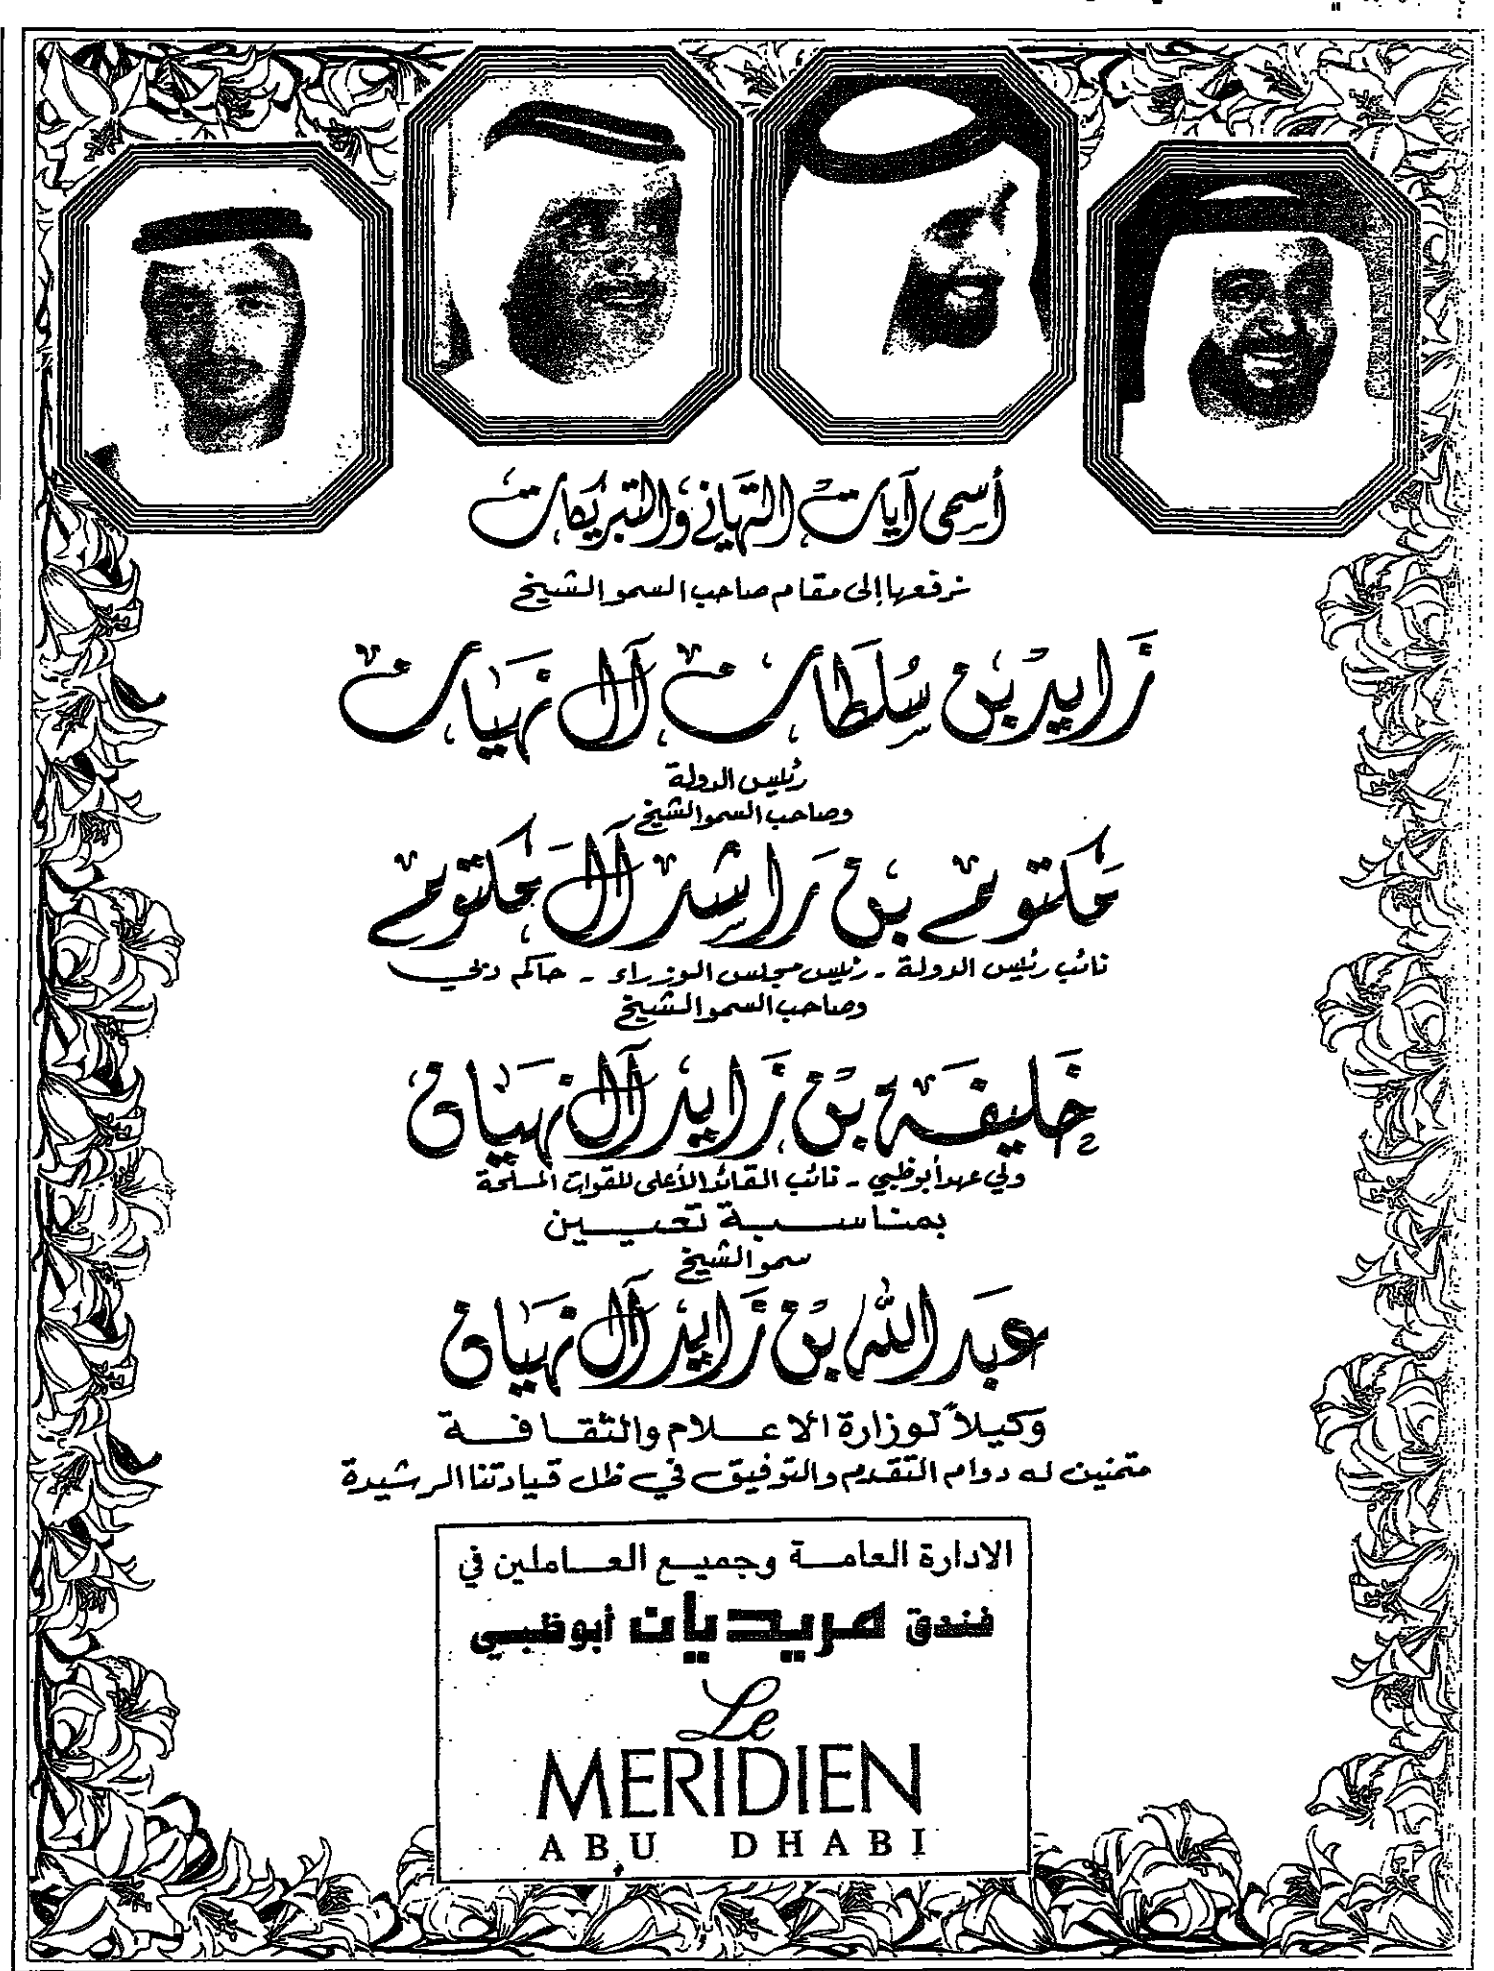 أسمى آيات التهاني والتبريكات
نرفعها إلى مقام صاحب السمو الشيخ
زايد بن سلطان آل نهيان
رئيس الدولة
وصاحب السمو الشيخ
مكتوم بن راشد آل مكتوم
نائب رئيس الدولة - رئيس مجلس الوزراء - حاكم دبي
وصاحب السمو الشيخ
خليفة بن زايد آل نهيان
ولي عهد أبوظبي - نائب القائد الأعلى للقوات المسلحة
بمناسبة تعيين
سمو الشيخ
عبدالله بن زايد آل نهيان
وكيلاً لوزارة الاعلام والثقافة
متمنين له دوام التقدم والتوفيق في ظل قيادتنا الرشيدة
الادارة العامة وجميع العاملين في
فندق مريديان أبوظبي
Le
MERIDIEN
ABU DHABI